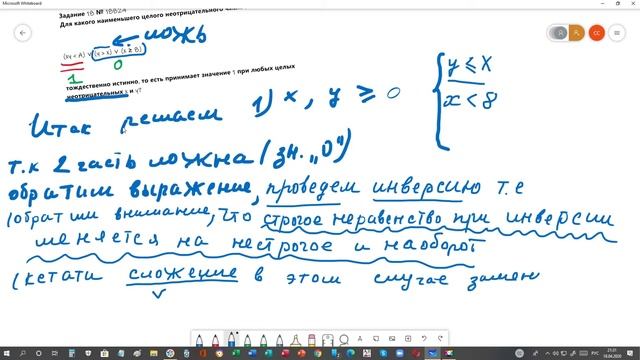 Microsoft Whiteboard
Задание 18 № 18824
Для какого наименьшего целого неотрицательного
ложь
(xy < A) ∨ (y > x) ∨ (x ≥ 8)
1 0
тождественно истинно, то есть принимает значение 1 при любых целых
неотрицательных x и y?
Итак решаем 1) x, y ≥ 0
{ y ≤ x
x < 8
т.к 2 часть ложна (зн. „0")
обратим выражение, проведем инверсию т.е
(обратим внимание, что строгое неравенство при инверсии
меняется на нестрогое и наоборот
(кстати сложение в этом случае замен
∨
РУС
21:01
16.04.2020